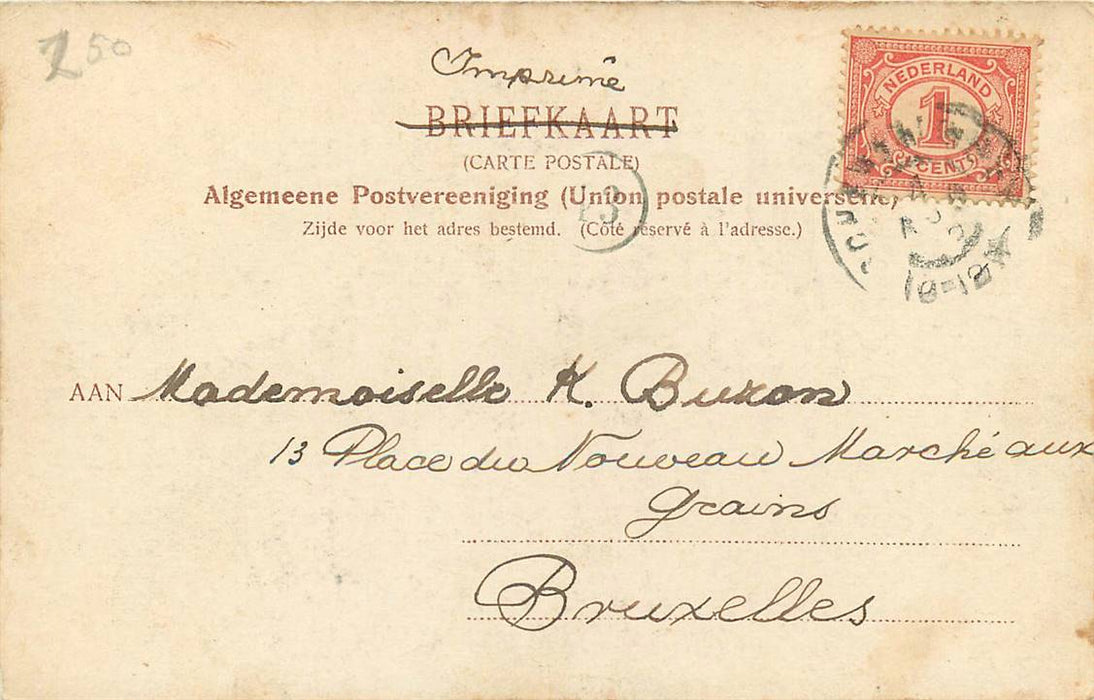 250
Imprimé
BRIEFKAART
(CARTE POSTALE)
Algemeene Postvereeniging (Union postale universelle)
Zijde voor het adres bestemd. (Côté réservé à l'adresse.)
3
NEDERLAND
1
1 CENT
AAN Mademoiselle K. Buxon
13 Place du Nouveau Marché aux
grains
Bruxelles